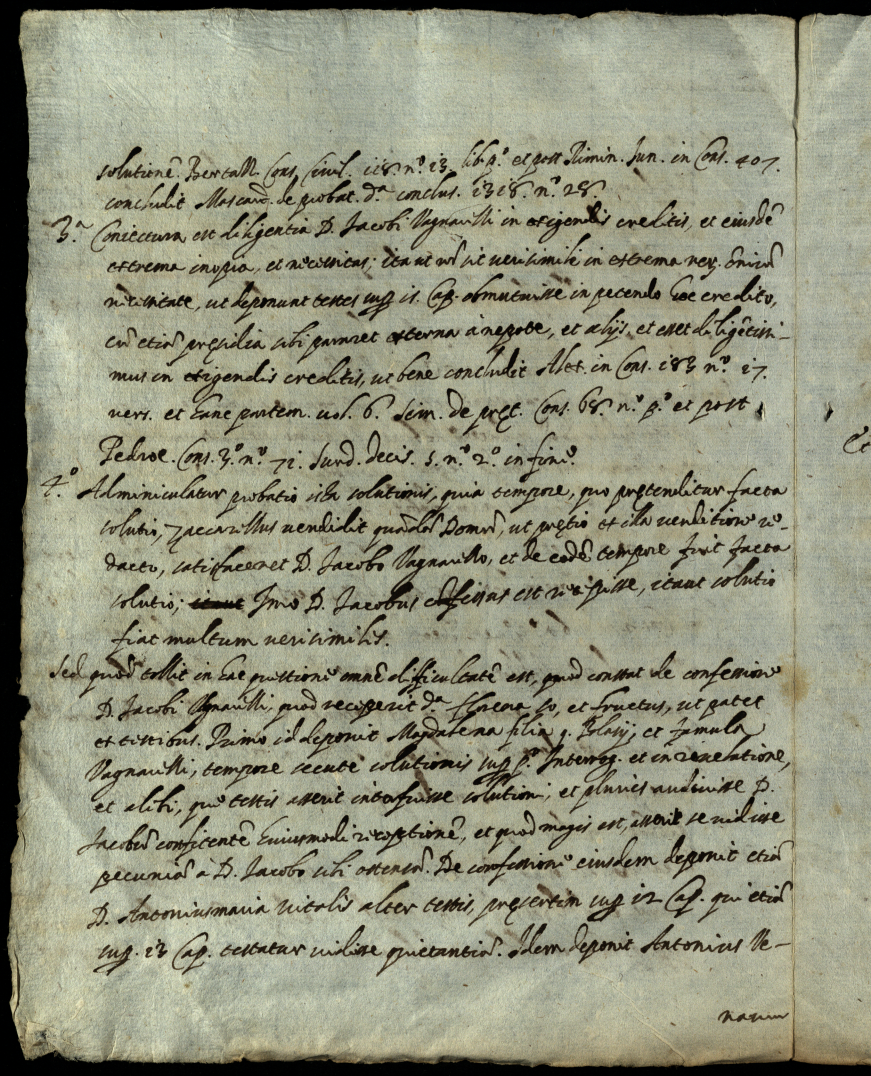 solutione. Bertazz. Cons. Civil. 118. n.º 13. lib. p.º et post Rimin. Jun. in Cons. 407.
concludit Mascard. de probat. d.ª conclus. 1318. n.º 28
3.ª Coniectura est diligentia D. Jacobi Vagnarelli in exigendis creditis, et eiusdē
extrema inopia, et necessitas; ita ut nō sit verisimile in extrema rer. omniū
necessitate, ut deponunt testes sup. 15. Cap. obmutuisse in petendo hoc credito,
cū etiā pręsidia sibi pararet externa à nepote, et alijs, et esset diligētissi-
mus in exigendis creditis, ut bene concludit Alex. in Cons. 183 n.º 17.
vers. et hanc partem. vol. 6.º Sim. de pręt. Cons. 68. n.º p.º et post
Pedroc. Cons. 3.º n.º 71. Surd. decis. 5. n.º 2.º in fine.
4.º Adminiculatur probatio ista solutionis, quia tempore, quo prętenditur facta
solutio, Zaccarellus vendidit quādā Domū, ut prętio ex illa venditione re-
dacto, satisfaceret D. Jacobo Vagnarello, et de eodē tempore fuit facta
solutio; itaut Imo D. Jacobus cōfessus est recepisse, itaut solutio
fiat multum verisimilis.
Sed quod tollit in hac questione omnē difficultatē est, quod constat de confessione
D. Jacobi Vagnarelli, quod receperit d.ª florena 50, et fructus, ut patet
ex testibus. Primo id deponit Magdalena filia q. Blasij, et famula
Vagnarelli, tempore secutę solutionis sup. p.º Interrog. et in renelatione,
et alibi, quę testis asserit interfuisse solutioni, et pluries audivisse D.
Jacobū confitentē huiusmodi receptionē, et quod magis est, asserit se vidisse
pecuniā à D. Jacobo sibi ostensā. De confessione eiusdem deponit etiā
D. Antoniusmaria Vitalis alter testis, pręsertim sup. 12 Cap. qui etiā
sup. 13 Cap. testatur vidisse quietantiā. Idem deponit Antonius Ve-